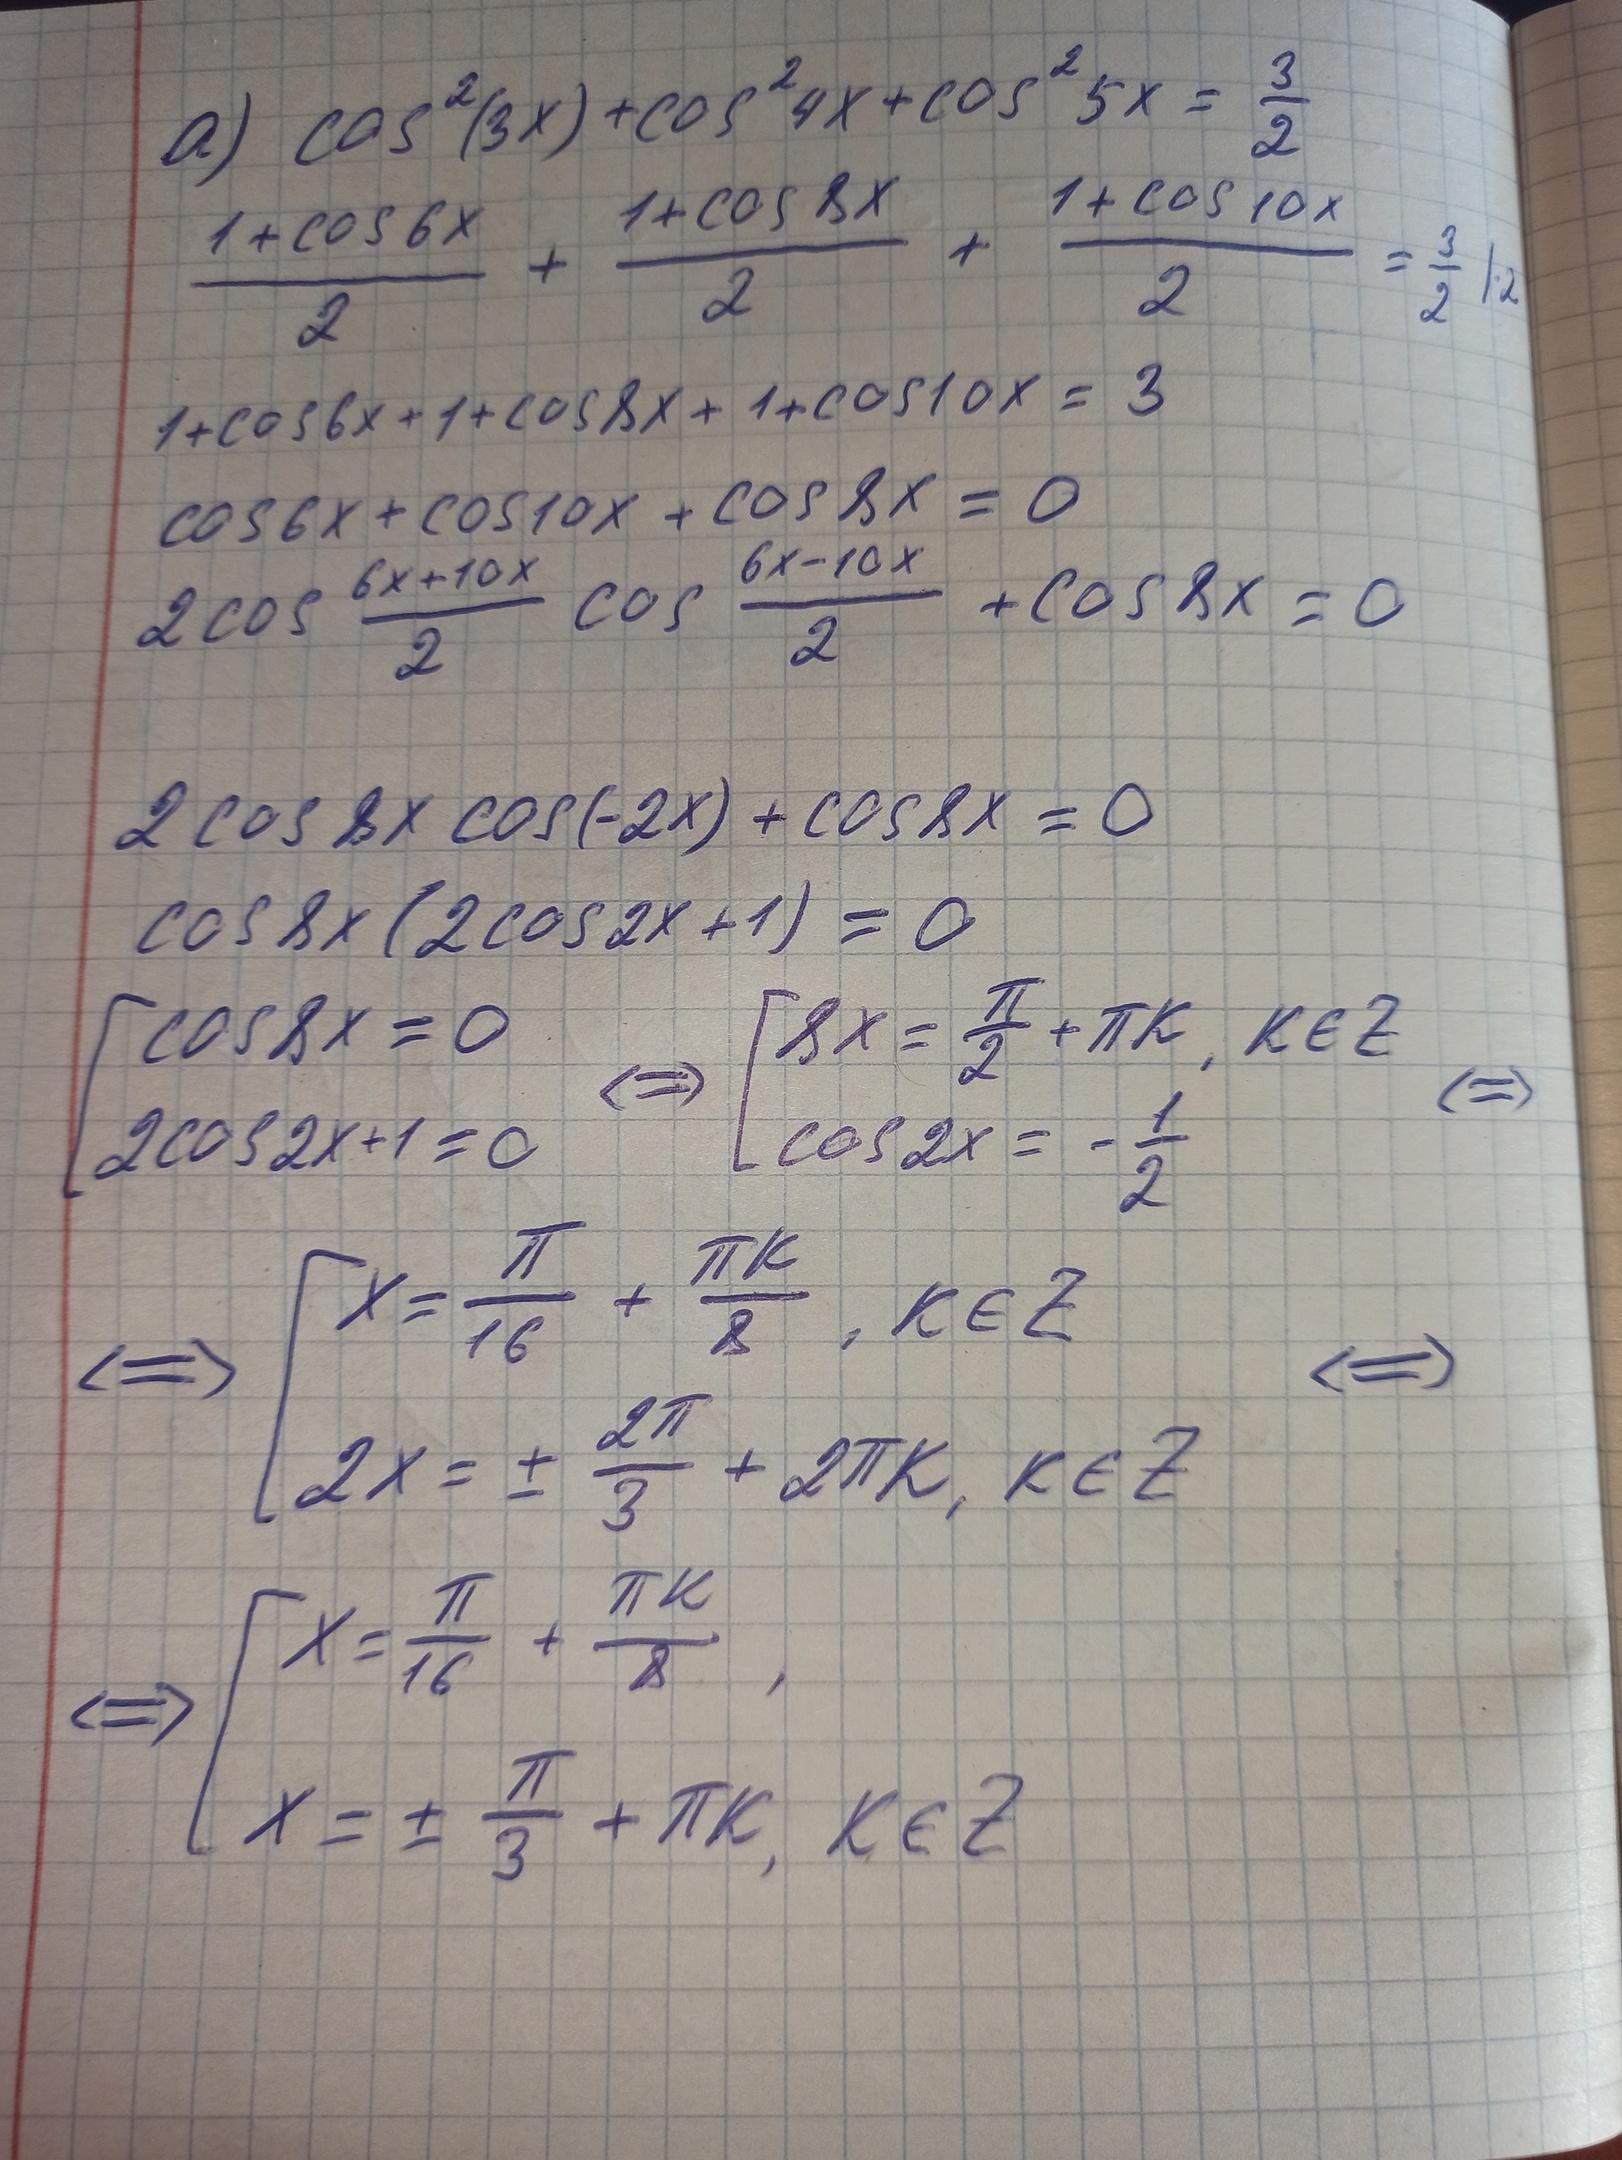 а) cos²(3x)+cos²4x+cos²5x = 3/2
(1+cos6x)/2 + (1+cos8x)/2 + (1+cos10x)/2 = 3/2 |·2
1+cos6x+1+cos8x+1+cos10x = 3
cos6x+cos10x+cos8x = 0
2cos (6x+10x)/2 cos (6x-10x)/2 +cos8x = 0
2cos8x cos(-2x)+cos8x = 0
cos8x(2cos2x+1) = 0
[ cos8x = 0 <=> [ 8x = π/2 + πk, k∈Z <=>
2cos2x+1 = 0 cos2x = -1/2
<=> [ x = π/16 + πk/8, k∈Z <=>
2x = ± 2π/3 + 2πk, k∈Z
<=> [ x = π/16 + πk/8,
x = ± π/3 + πk, k∈Z